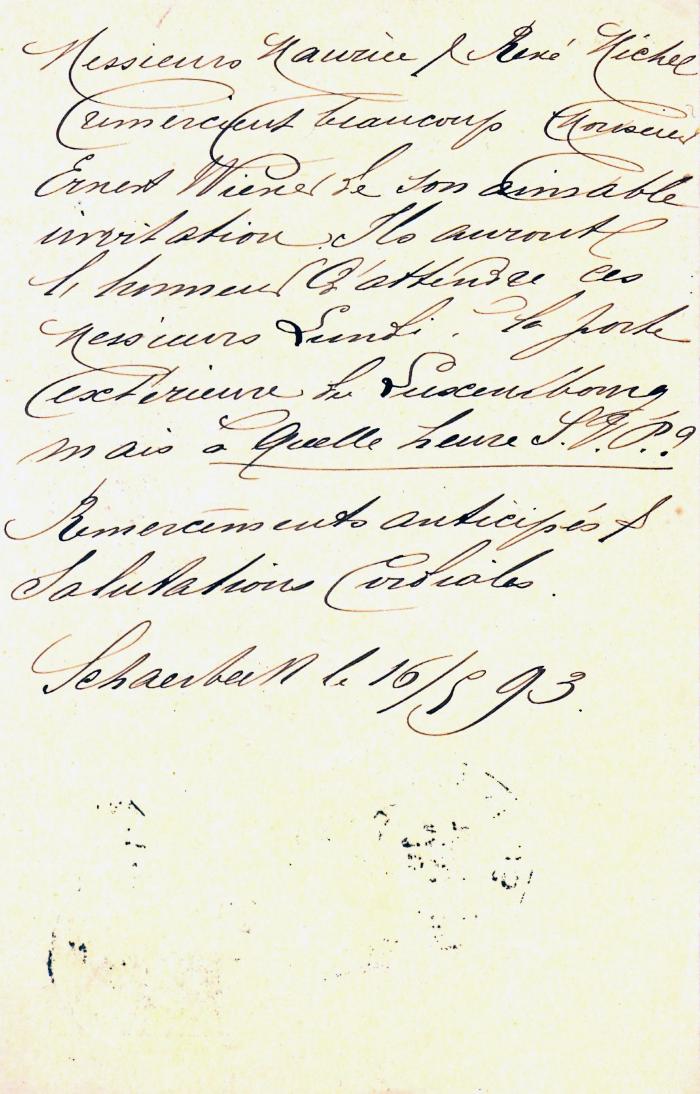 Messieurs Maurice & René Michel
remercient beaucoup Monsieur
Ernest Wiener de son aimable
invitation. Ils auront
l'honneur d'attendre ces
Messieurs Lundi. la porte
extérieure du Luxembourg
mais à quelle heure S.V.P.?
Remerciements anticipés &
Salutations Cordiales.
Schaerbeek le 16/5 93.